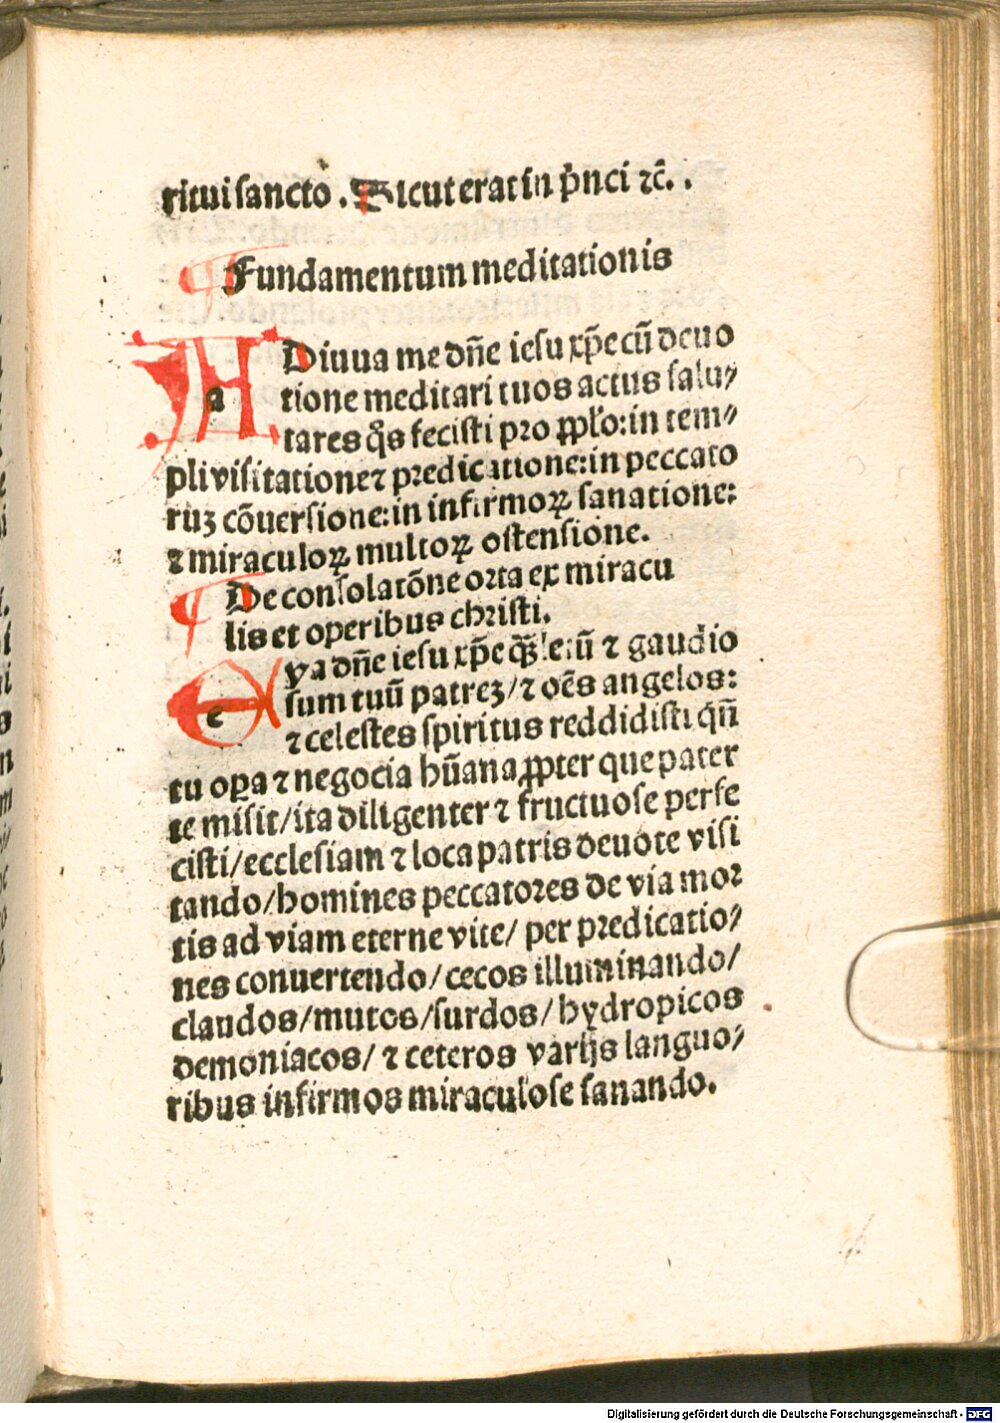 ritui sancto . Sicut erat in p̄nci ⁊c̄. .
Fundamentum meditationis
ADiuua me dn̄e iesu xp̄e cū deuo
tione meditari tuos actus salu⸗
tares q̄s fecisti pro pplo: in tem⸗
pli visitatione ⁊ predicatione: in peccato
ruꝫ cōuersione: in infirmoꝝ sanatione:
⁊ miraculoꝝ multoꝝ ostensione.
De consolatōne orta ex miracu
lis et operibus christi.
Eya dn̄e iesu xp̄e ⁊ gaudio
sum tuū patreꝫ/ ⁊ oēs angelos:
⁊ celestes spiritus reddidisti qn̄
tu oꝑa ⁊ negocia hūana ꝓpter que pater
te misit/ ita diligenter ⁊ fructuose perfe
cisti/ ecclesiam ⁊ loca patris deuote visi
tando/ homines peccatores de via mor
tis ad viam eterne vite/ per predicatio⸗
nes conuertendo/ cecos illuminando/
claudos/ mutos/ surdos/ hydropicos
demoniacos/ ⁊ ceteros varijs languo⸗
ribus infirmos miraculose sanando.
Digitalisierung gefördert durch die Deutsche Forschungsgemeinschaft - DFG